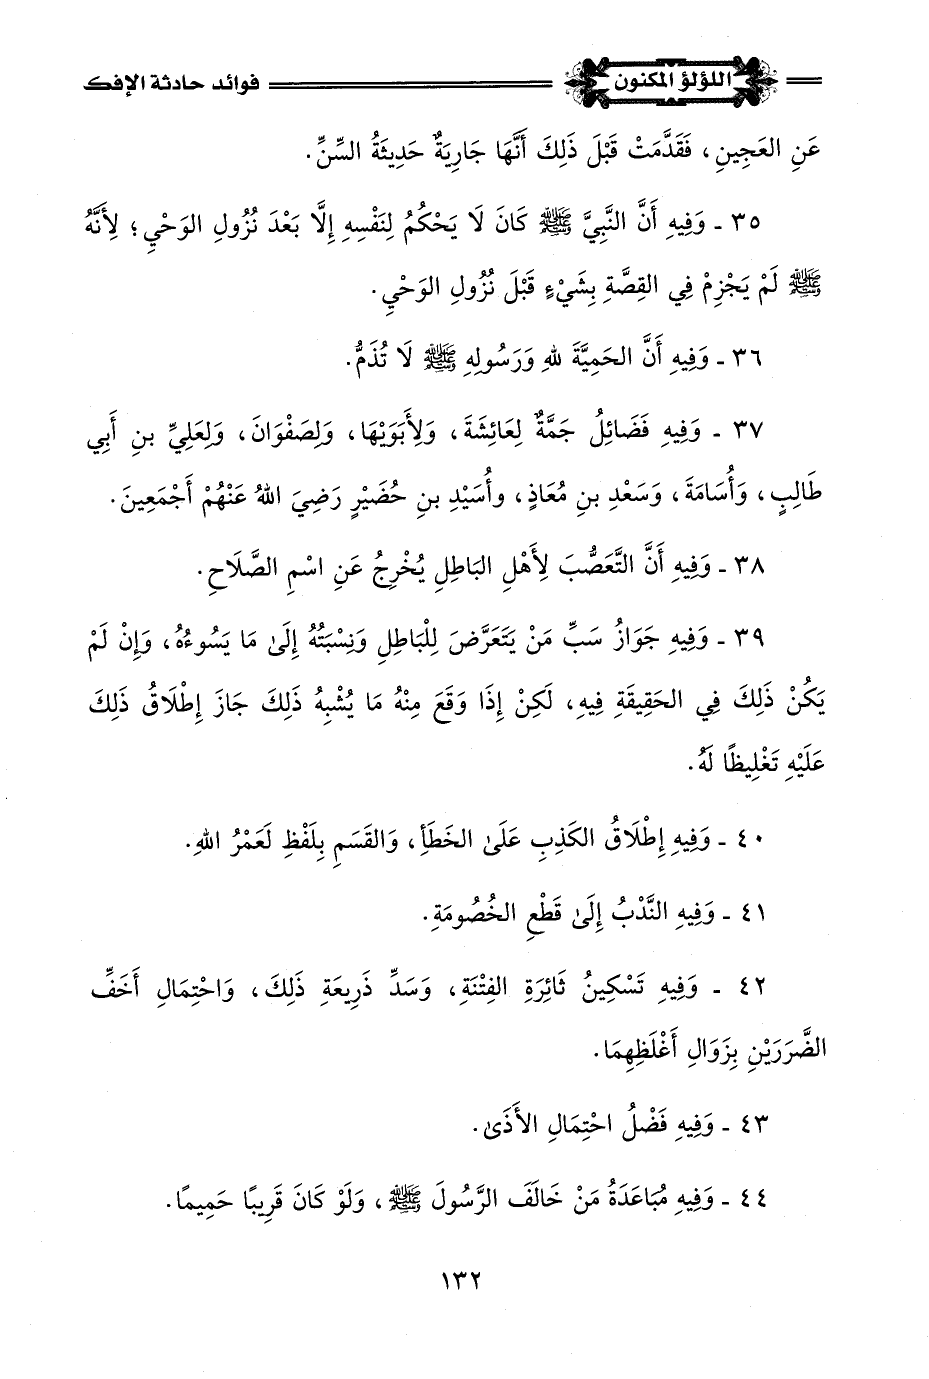 اللؤلؤ المكنون فوائد حادثة الإفك
عَنِ العَجِينِ، فَقَدَّمَتْ قَبْلَ ذَلِكَ أَنَّهَا جَارِيَةٌ حَدِيثَةُ السِّنِّ.
٣٥ ـ وَفِيهِ أَنَّ النَّبِيَّ ﷺ كَانَ لَا يَحْكُمُ لِنَفْسِهِ إِلَّا بَعْدَ نُزُولِ الوَحْيِ؛ لِأَنَّهُ
ﷺ لَمْ يَجْزِمْ فِي القِصَّةِ بِشَيْءٍ قَبْلَ نُزُولِ الوَحْيِ.
٣٦ ـ وَفِيهِ أَنَّ الحَمِيَّةَ للهِ وَرَسُولِهِ ﷺ لَا تُذَمُّ.
٣٧ ـ وَفِيهِ فَضَائِلُ جَمَّةٌ لِعَائِشَةَ، وَلِأَبَوَيْهَا، وَلِصَفْوَانَ، وَلِعَلِيِّ بنِ أَبِي
طَالِبٍ، وَأُسَامَةَ، وَسَعْدِ بنِ مُعَاذٍ، وأُسَيْدِ بنِ حُضَيْرٍ رَضِيَ اللهُ عَنْهُمْ أَجْمَعِينَ.
٣٨ ـ وَفِيهِ أَنَّ التَّعَصُّبَ لِأَهْلِ البَاطِلِ يُخْرِجُ عَنِ اسْمِ الصَّلَاحِ.
٣٩ ـ وَفِيهِ جَوَازُ سَبِّ مَنْ يَتَعَرَّضَ لِلْبَاطِلِ وَنِسْبَتُهُ إِلَىٰ مَا يَسُوءُهُ، وَإِنْ لَمْ
يَكُنْ ذَلِكَ فِي الحَقِيقَةِ فِيهِ، لَكِنْ إِذَا وَقَعَ مِنْهُ مَا يُشْبِهُ ذَلِكَ جَازَ إِطْلَاقُ ذَلِكَ
عَلَيْهِ تَغْلِيظًا لَهُ.
٤٠ ـ وَفِيهِ إِطْلَاقُ الكَذِبِ عَلَىٰ الخَطَأِ، وَالقَسَمِ بِلَفْظِ لَعَمْرُ اللهِ.
٤١ ـ وَفِيهِ النَّدْبُ إِلَىٰ قَطْعِ الخُصُومَةِ.
٤٢ ـ وَفِيهِ تَسْكِينُ ثَائِرَةِ الفِتْنَةِ، وَسَدِّ ذَرِيعَةِ ذَلِكَ، وَاحْتِمَالِ أَخَفِّ
الضَّرَرَيْنِ بِزَوَالِ أَغْلَظِهِمَا.
٤٣ ـ وَفِيهِ فَضْلُ احْتِمَالِ الأَذَىٰ.
٤٤ ـ وَفِيهِ مُبَاعَدَةُ مَنْ خَالَفَ الرَّسُولَ ﷺ، وَلَوْ كَانَ قَرِيبًا حَمِيمًا.
١٣٢